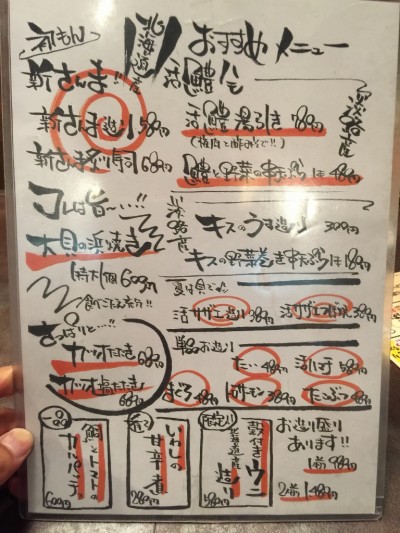 おすすめメニュー
初もん
北海道産
新さんま!!
新さんま造り 580円
新さんま炙り寿司 680円
コレは旨…!!
淡路産
大貝の浜焼き
1個 600円
さっぱりと…!!
カツオたたき 680円
カツオ塩たたき 680円
淡路産
活鱧
活鱧湯引き 780円
(梅肉と酢みそで!!)
鱧と野菜の天ぷら 480円
キスのうす造り 380円
キスの野菜巻き天ぷら 180円
夏は貝でっせ
活サザエ造り 380円
活サザエつぼ焼 380円
単品お造り
たい 480円
活ハモ 580円
まぐろ 480円
サーモン 380円
たこぶつ 480円
一品
鯛とトマトのカルパッチョ 600円
煮
いわしの甘辛煮 280円
限定
殻付きウニ造り
北海道産
580円
お造り盛りあります!!
1人前 980円
2人前 1480円